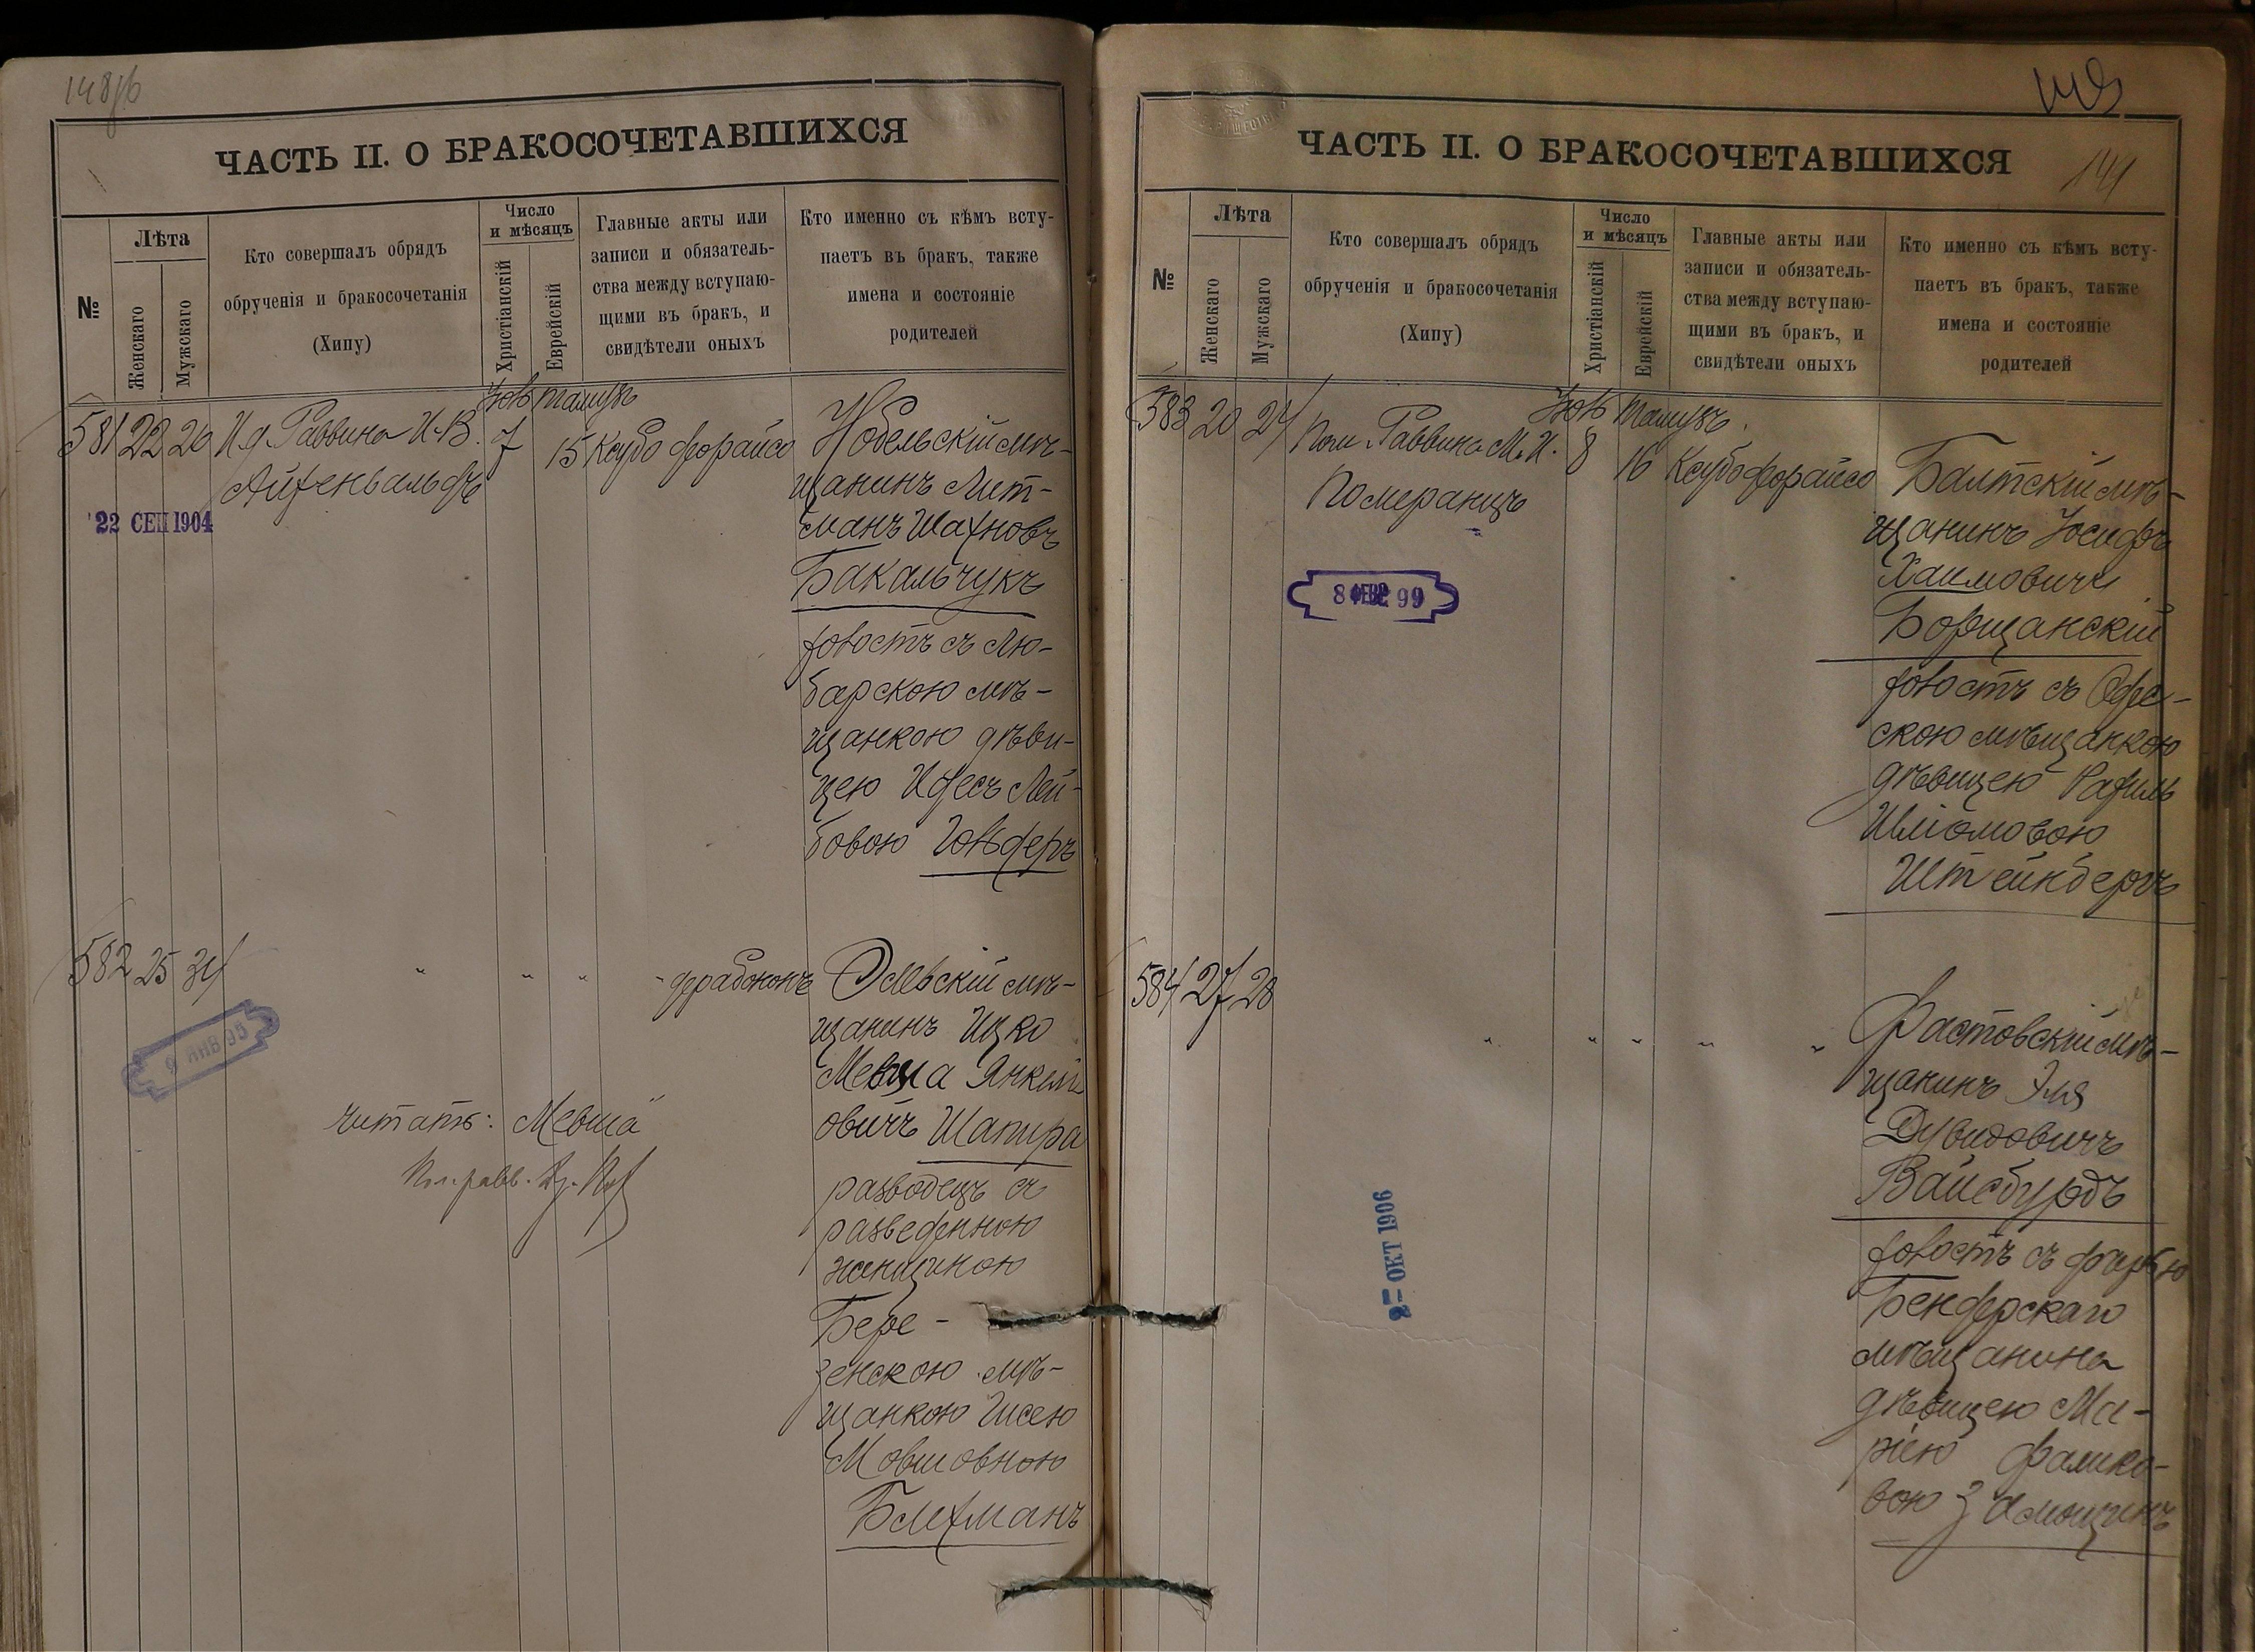 148/б
ЧАСТЬ II. О БРАКОСОЧЕТАВШИХСЯ
№
Лѣта
Женскаго
Мужскаго
Кто совершалъ обрядъ
обрученія и бракосочетанія
(Хипу)
Число
и мѣсяцъ
Христіанскій
Еврейскій
Главные акты или
записи и обязатель-
ства между вступаю-
щими въ бракъ, и
свидѣтели оныхъ
Кто именно съ кѣмъ всту-
паетъ въ бракъ, также
имена и состояніе
родителей
тамузъ
581 22 26 И.д. Раввина И.В. 7 15 Ксубо форайсо
Айзенвальдъ
22 СЕП 1904
Нобельскій мѣ-
щанинъ Лит-
манъ Шахновъ
Бакальчукъ
холостъ съ Лю-
барскою мѣ-
щанкою дѣви-
цею Идесъ Лей-
бовою
582 25 34 " " " "
9 ЯНВ 95
Олевскій мѣ-
щанинъ Ицко
Мевша
овичъ Шапира
разводецъ съ
разведенною
женщиною
Бере-
зенскою мѣ-
щанкою
Мовшовною
Блехманъ
читать: „Мевша"
ЧАСТЬ II. О БРАКОСОЧЕТАВШИХСЯ
141
№
Лѣта
Женскаго
Мужскаго
Кто совершалъ обрядъ
обрученія и бракосочетанія
(Хипу)
Число
и мѣсяцъ
Христіанскій
Еврейскій
Главные акты или
записи и обязатель-
ства между вступаю-
щими въ бракъ, и
свидѣтели оныхъ
Кто именно съ кѣмъ всту-
паетъ въ бракъ, также
имена и состояніе
родителей
Тамузъ
583 20 24 Пом. Раввина М.И. 8 16 Ксубо форайсо
Померанцъ
Балтскій мѣ-
щанинъ Іосифъ
Хаимовичъ
Борщанскій
холостъ съ Одес-
скою мѣщанкою
дѣвицею Рахиль
Шліомовою
Штейнбергъ
584 27 28 " " " " "
2 – ОКТ 1906
Фастовскій мѣ-
щанинъ Эля
Дувидовичъ
Вайсбурдъ
холостъ съ дочерью
Бендерскаго
мѣщанина
дѣвицею Ма-
ріею Фалико-
вою